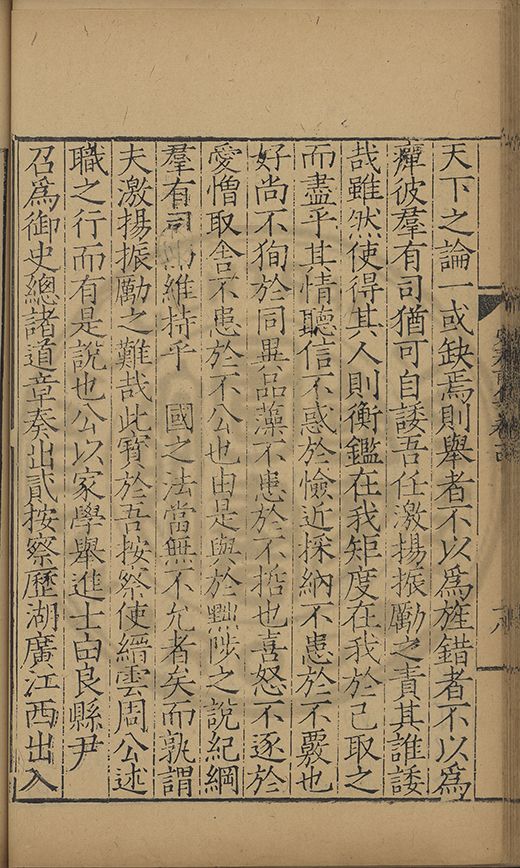 天下之論一或缺焉則舉者不以爲旌錯者不以爲
癉彼羣有司猶可自諉吾任激揚振勵之責其誰諉
哉雖然使得其人則衡鑑在我矩度在我於己取之
而盡乎其情聽信不惑於憸近採納不患於不覈也
好尚不狥於同異品藻不患於不哲也喜怒不逐於
愛憎取舍不患於不公也由是與於黜陟之說紀綱
羣有司 維持乎 國之法當無不允者矣而孰謂
夫激揚振勵之難哉此實於吾按察使縉雲周公述
職之行而有是說也公以家學舉進士由良縣尹
召爲御史總諸道章奏出貳按察歷湖廣江西出入